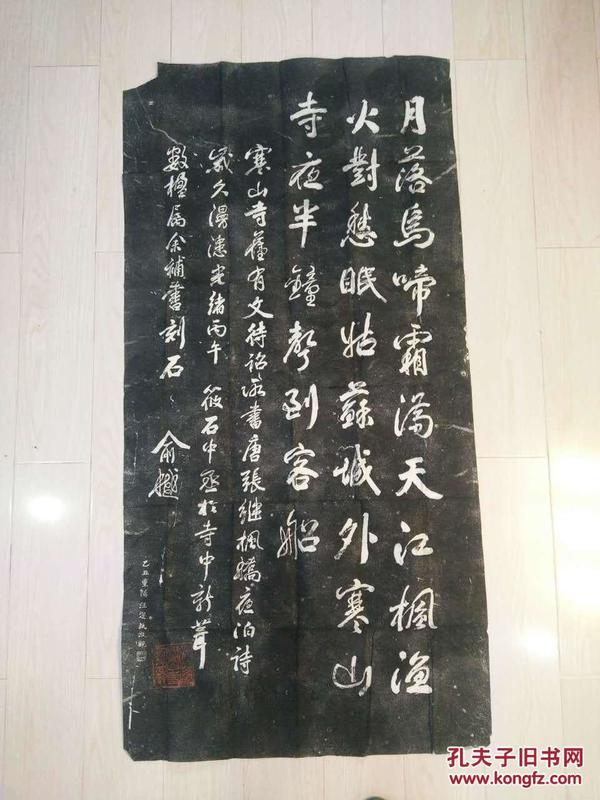 月落烏啼霜滿天江楓漁
火對愁眠姑蘇城外寒山
寺夜半鐘聲到客船
寒山寺舊有文待詔所書唐張繼楓橋夜泊詩
歲久漫漶光緒丙午 筱石中丞於寺中新葺
數楹属余補書刻石 俞樾
孔夫子旧书网
www.kongfz.com